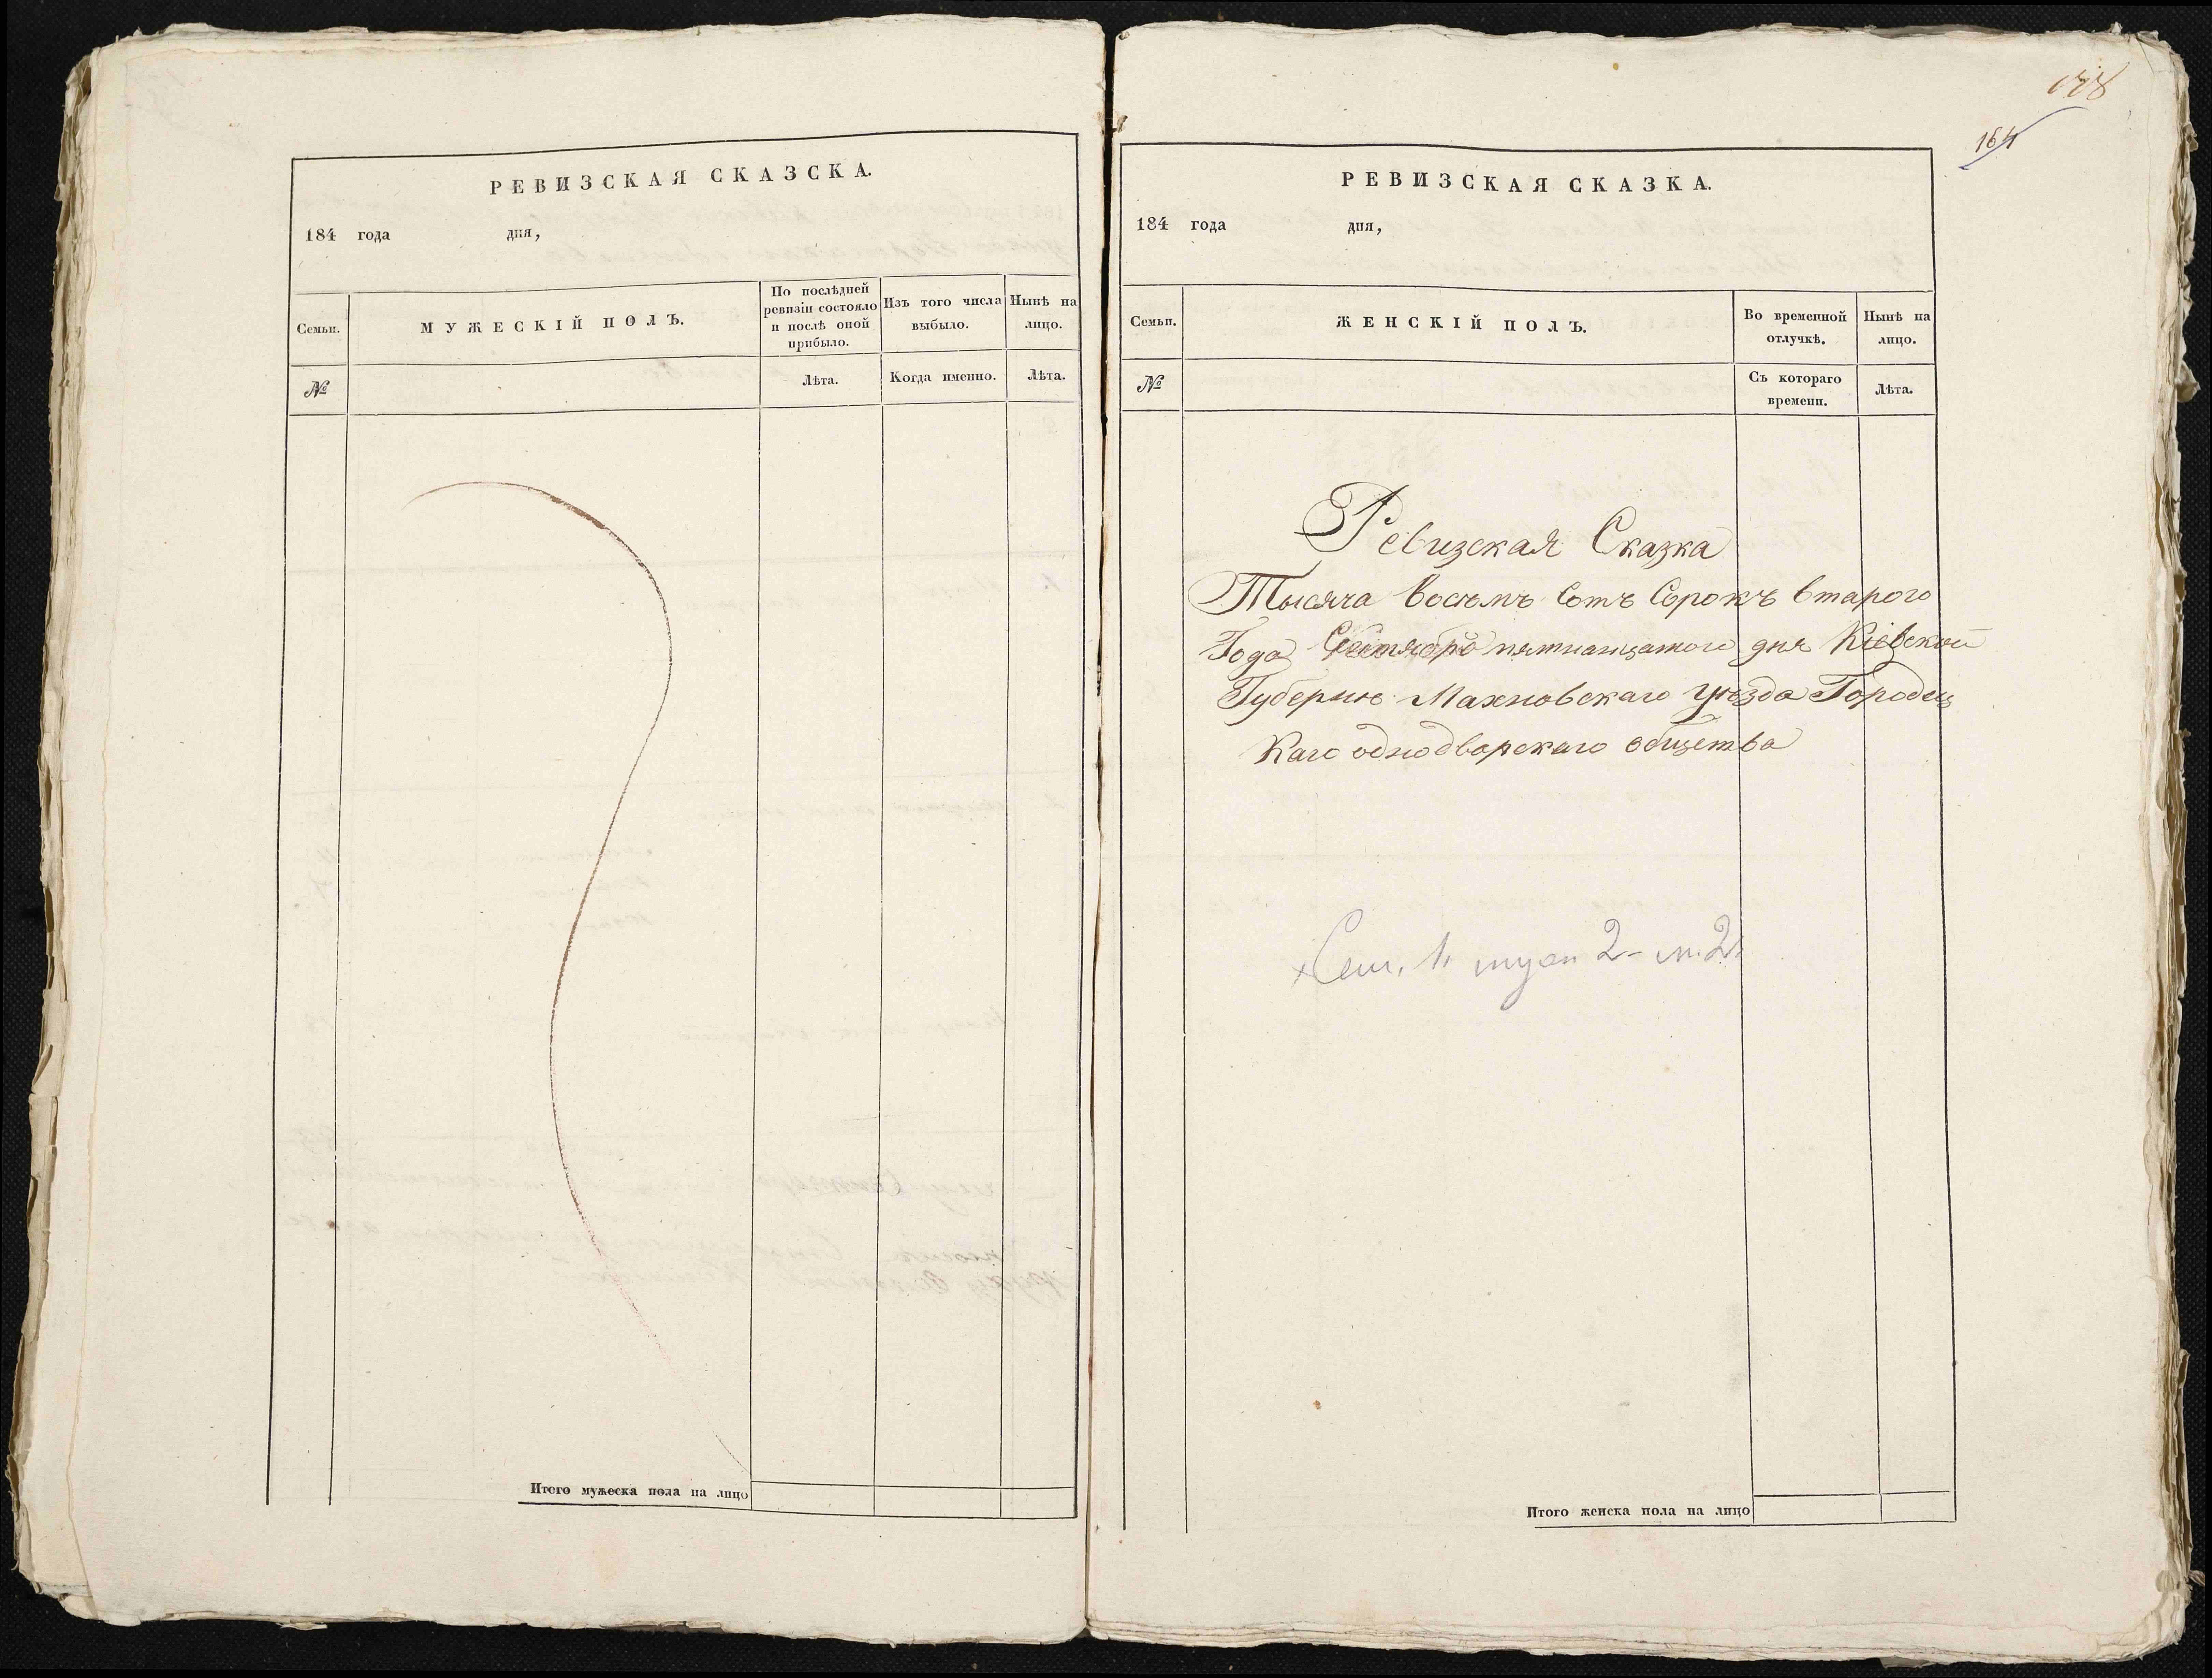 РЕВИЗСКАЯ СКАЗСКА.
184 года дня,
Семьи.
МУЖЕСКІЙ ПОЛЪ.
По послѣдней
ревизіи состояло
и послѣ оной
прибыло.
Изъ того числа
выбыло.
Нынѣ на
лицо.
№
Лѣта.
Когда именно.
Лѣта.
Итого мужеска пола на лицо
164
РЕВИЗСКАЯ СКАЗКА.
184 года дня,
Семьи.
ЖЕНСКІЙ ПОЛЪ.
Во временной
отлучкѣ.
Нынѣ на
лицо.
№
Съ котораго
времени.
Лѣта.
Ревизская Сказка
Тысяча Восемъ Сотъ Сорокъ втараго
Года пятнатцатого дня Кіевской
Губерніи Махновскаго уѣзда Городец
каго однодварскаго общества
Сем. 1. муж 2
Итого женска пола на лицо